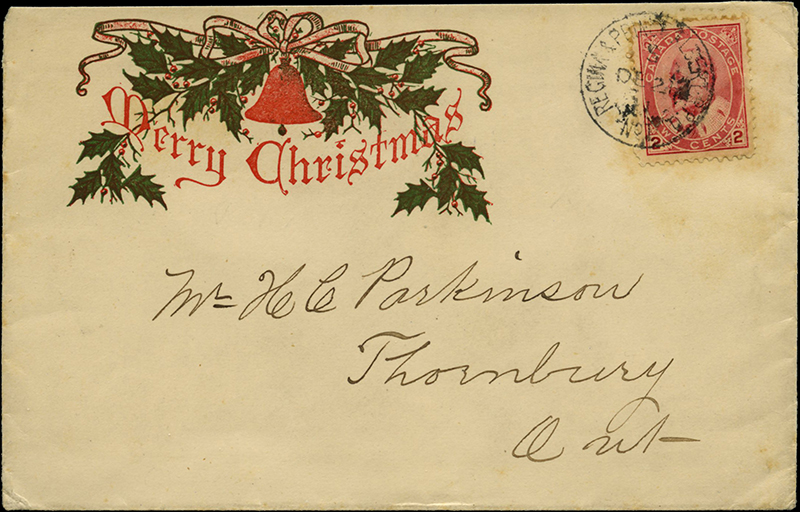 Merry Christmas
CANADA POSTAGE
2 TWO CENTS 2
REGINA
DE
Mr H C Parkinson
Thornbury
Ont